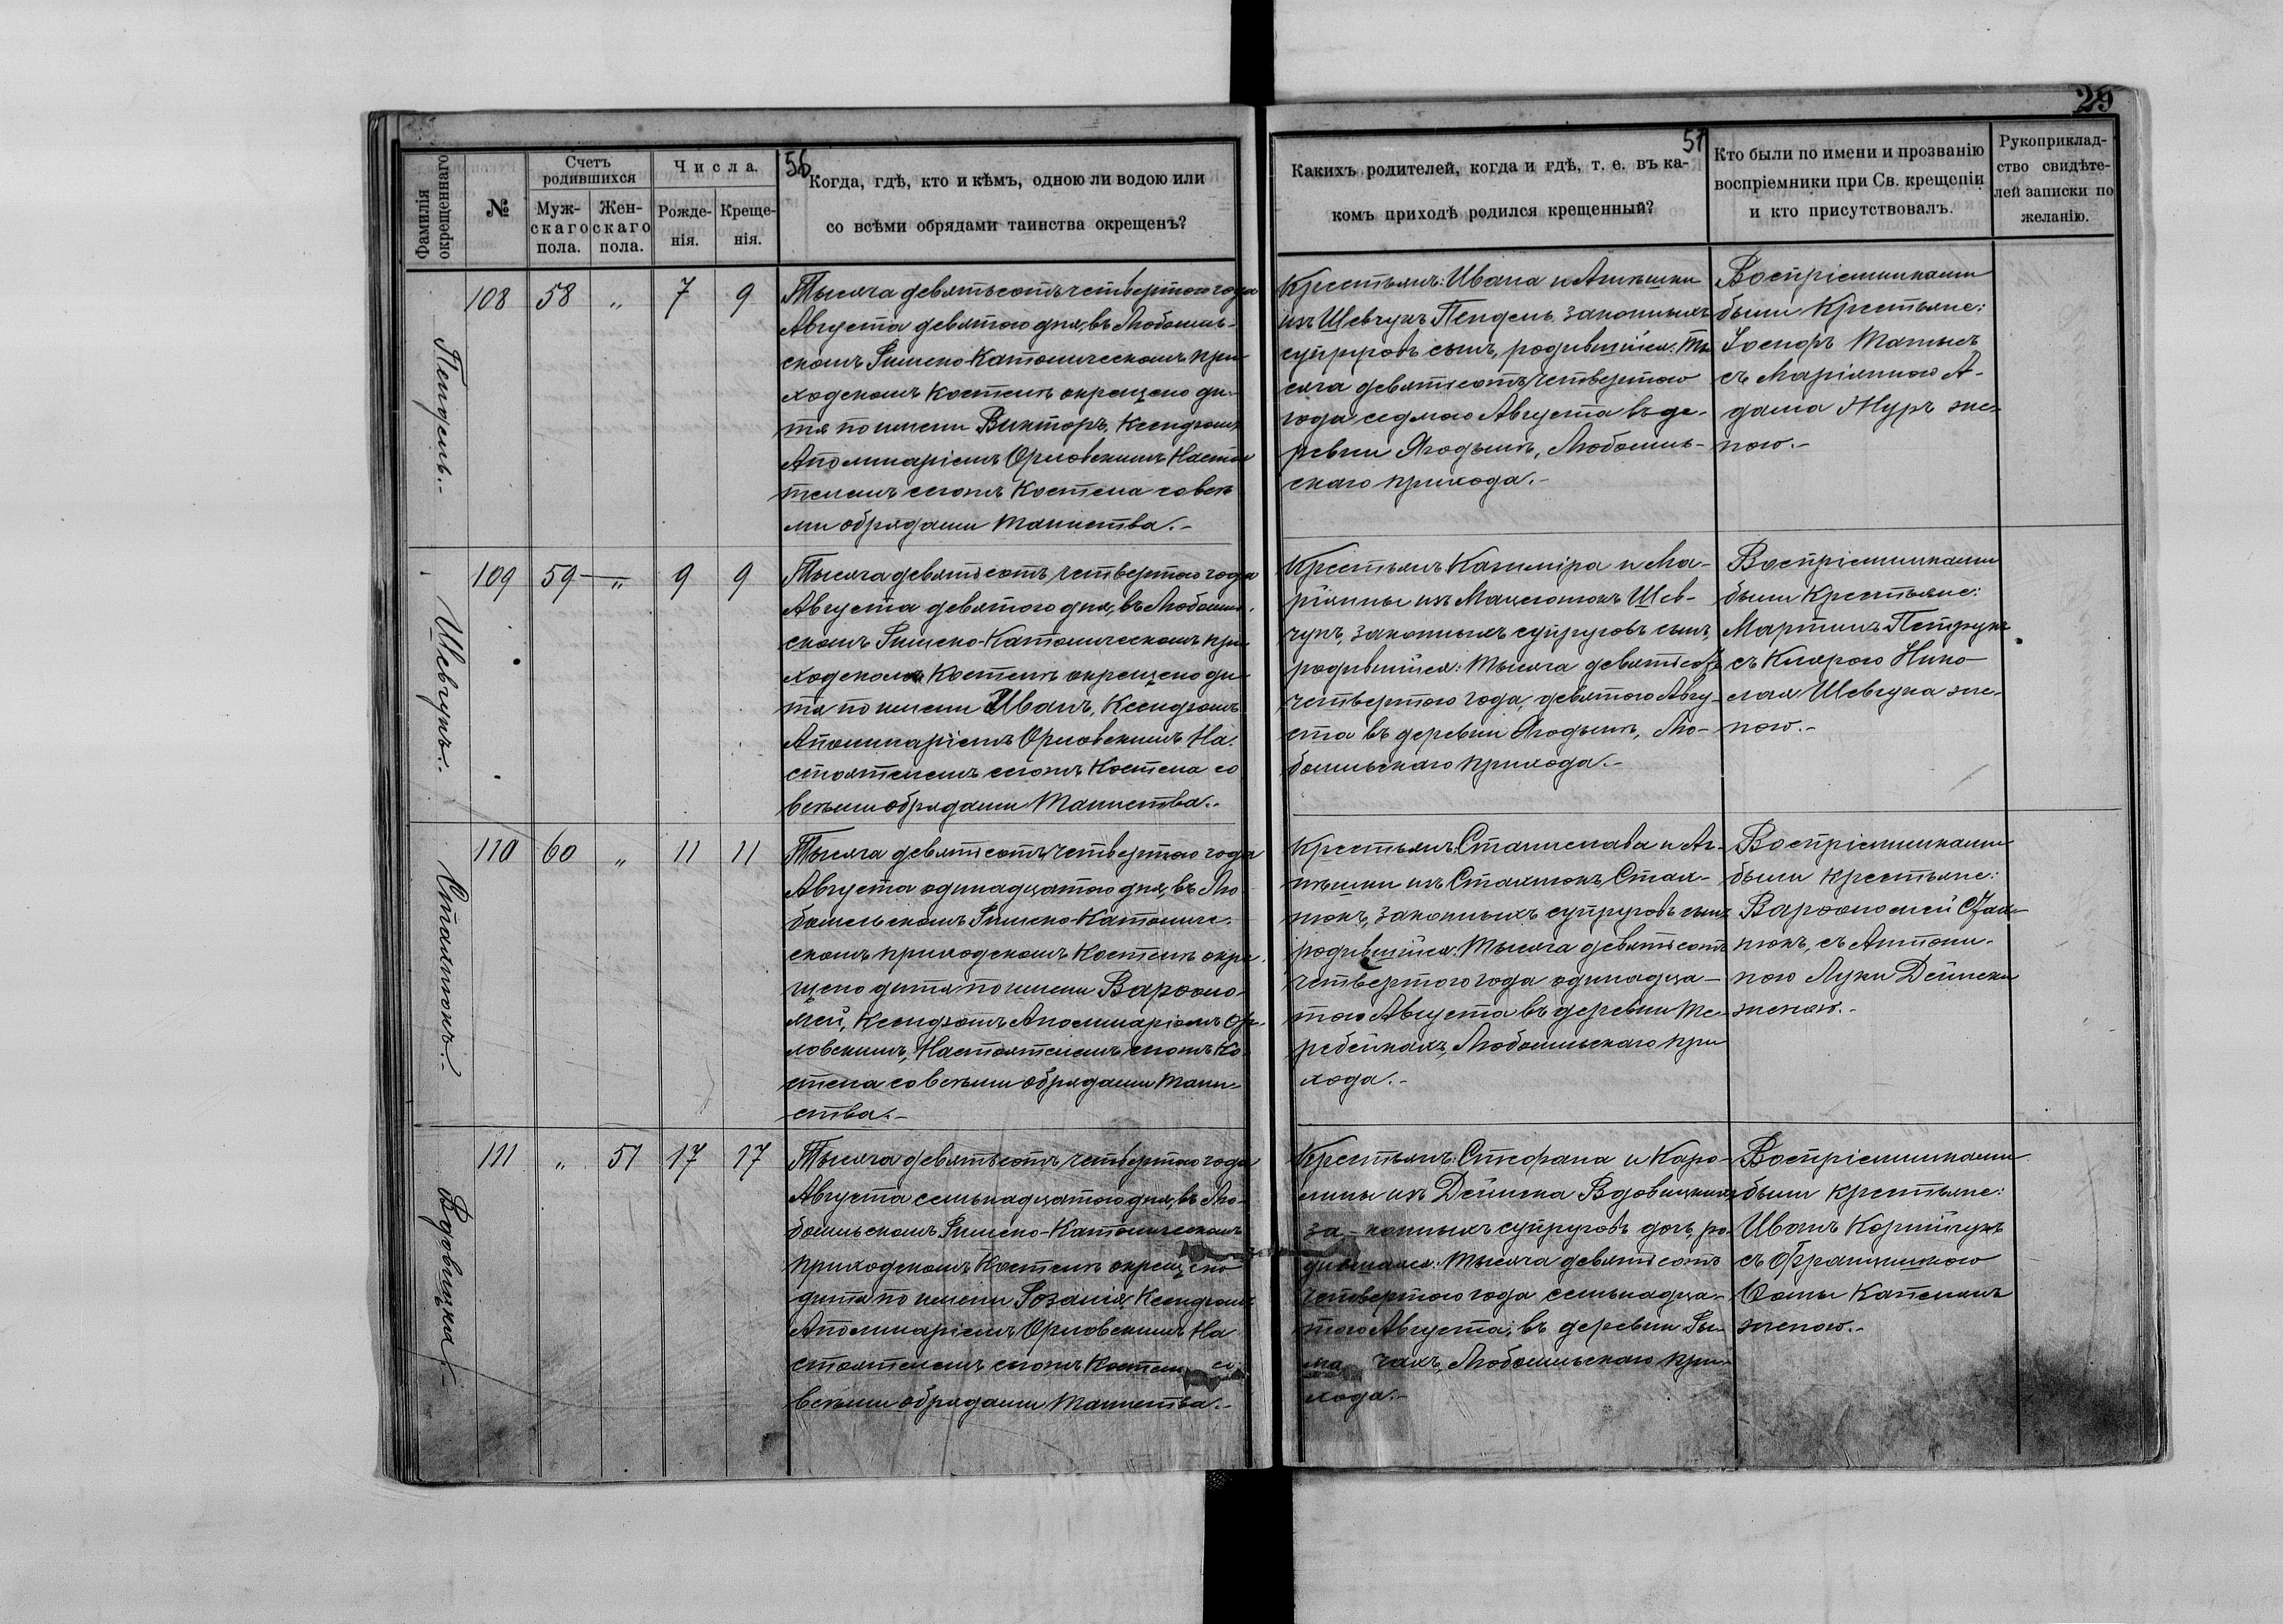 29
56
57
Фамилія окрещеннаго
№
Счетъ родившихся
Муж-
скаго
пола.
Жен-
скаго
пола.
Числа.
Рожде-
нія.
Креще-
нія.
Когда, гдѣ, кто и кѣмъ, одною ли водою или
со всѣми обрядами таинства окрещенъ?
Какихъ родителей, когда и гдѣ, т. е. въ ка-
комъ приходѣ родился крещенный?
Кто были по имени и прозванію
воспріемники при Св. крещеніи
и кто присутствовалъ.
Рукоприклад-
ство свидѣте-
лей записки по
желанію.
Пендель.-
108 58 „ 7 9
Тысяча девятьсотъ четвертого года
Августа девятого дня, въ Любомль-
скомъ Римско-Католическомъ при-
ходскомъ Костелѣ окрещено ди-
тя по имени Викторъ, Ксендзомъ
Аполинаріемъ Орловскимъ Настоя
телемъ сегожъ Костела со всѣ
ми обрядами таинства.-
Крестьянъ: Ивана и Агнѣшки
изъ Шевчукъ Пендель законныхъ
супруговъ сынъ, родившійся: ты
сяча девятьсотъ четвертого
года седмого Августа въ де-
ревни Ягодынѣ, Любомль-
скаго прихода.-
Воспріемниками
были Крестьяне:
Іосифъ Матысъ
съ Маріянною А-
дама Журъ же-
ною.-
Шевчукъ.-
109 59 — „ 9 9
Тысяча девятьсотъ четвертого года
Августа девятого дня, въ Любомль-
скомъ Римско-Католическомъ при
ходскомъ Костелѣ окрещено ди
тя по имени Иванъ, Ксендзомъ
Аполинаріемъ Орловскимъ На-
стоятелемъ сегожъ Костела со
всѣми обрядами Таинства.-
Крестьянъ Казиміра и Ма-
ріянны изъ Мацегонокъ Шев-
чукъ, законныхъ супруговъ сынъ,
родившійся: тысяча девятьсотъ
четвертого года, девятого Авгу-
ста въ деревни Ягодынѣ, Лю-
бомльскаго прихода.-
Воспріемниками
были Крестьяне:
Мартинъ Петрукъ
съ Клярою Нико-
лая Шевчука же-
ною.-
Стахнюкъ.-
110 60 „ 11 11
Тысяча девятьсотъ четвертого года
Августа одинадцатого дня, въ Лю-
бомльскомъ Римско-Католиче-
скомъ приходскомъ Костелѣ окре-
щено дитя по имени Варѳоло-
мей, Ксендзомъ Аполинаріемъ Ор-
ловскимъ, Настоятелемъ сегожъ Ко
стела со всѣми обрядами таин-
ства.-
Крестьянъ: Станислава и Аг-
нѣшки изъ Стахнюкъ, Стах-
нюкъ, законныхъ супруговъ сынъ
родившійся: Тысяча девятьсотъ
четвертого года одинадца-
того Августа въ деревни Те-
ребейкахъ, Любомльскаго при
хода.-
Воспріемниками
были крестьяне:
Варѳоломей Стах-
нюкъ, съ Антони-
ною Луки Дейнеки
женою.-
Вдовицкая.-
111 „ 51 17 17
Тысяча девятьсотъ четвертого года
Августа семьнадцатого дня, въ Лю-
бомльскомъ Римско-Католическомъ
приходскомъ Костелѣ окрещено
дитя по имени Розалія, Ксендзомъ
Аполинаріемъ Орловскимъ На
стоятелемъ сегожъ Костела со
всѣми обрядами Таинства.-
Крестьянъ: Стефана и Каро-
лины изъ Дейнека Вдовицкихъ
за-конныхъ супруговъ дочь, ро-
дившаяся: тысяча девятьсотъ
четвертого года семьнадца-
того Августа, въ деревни Ры-
ма чахъ, Любомльскаго при-
хода.-
Воспріемниками
были крестьяне:
Иванъ Корнійчукъ
съ Францишкою
Ѳомы Капсланъ
женою.-